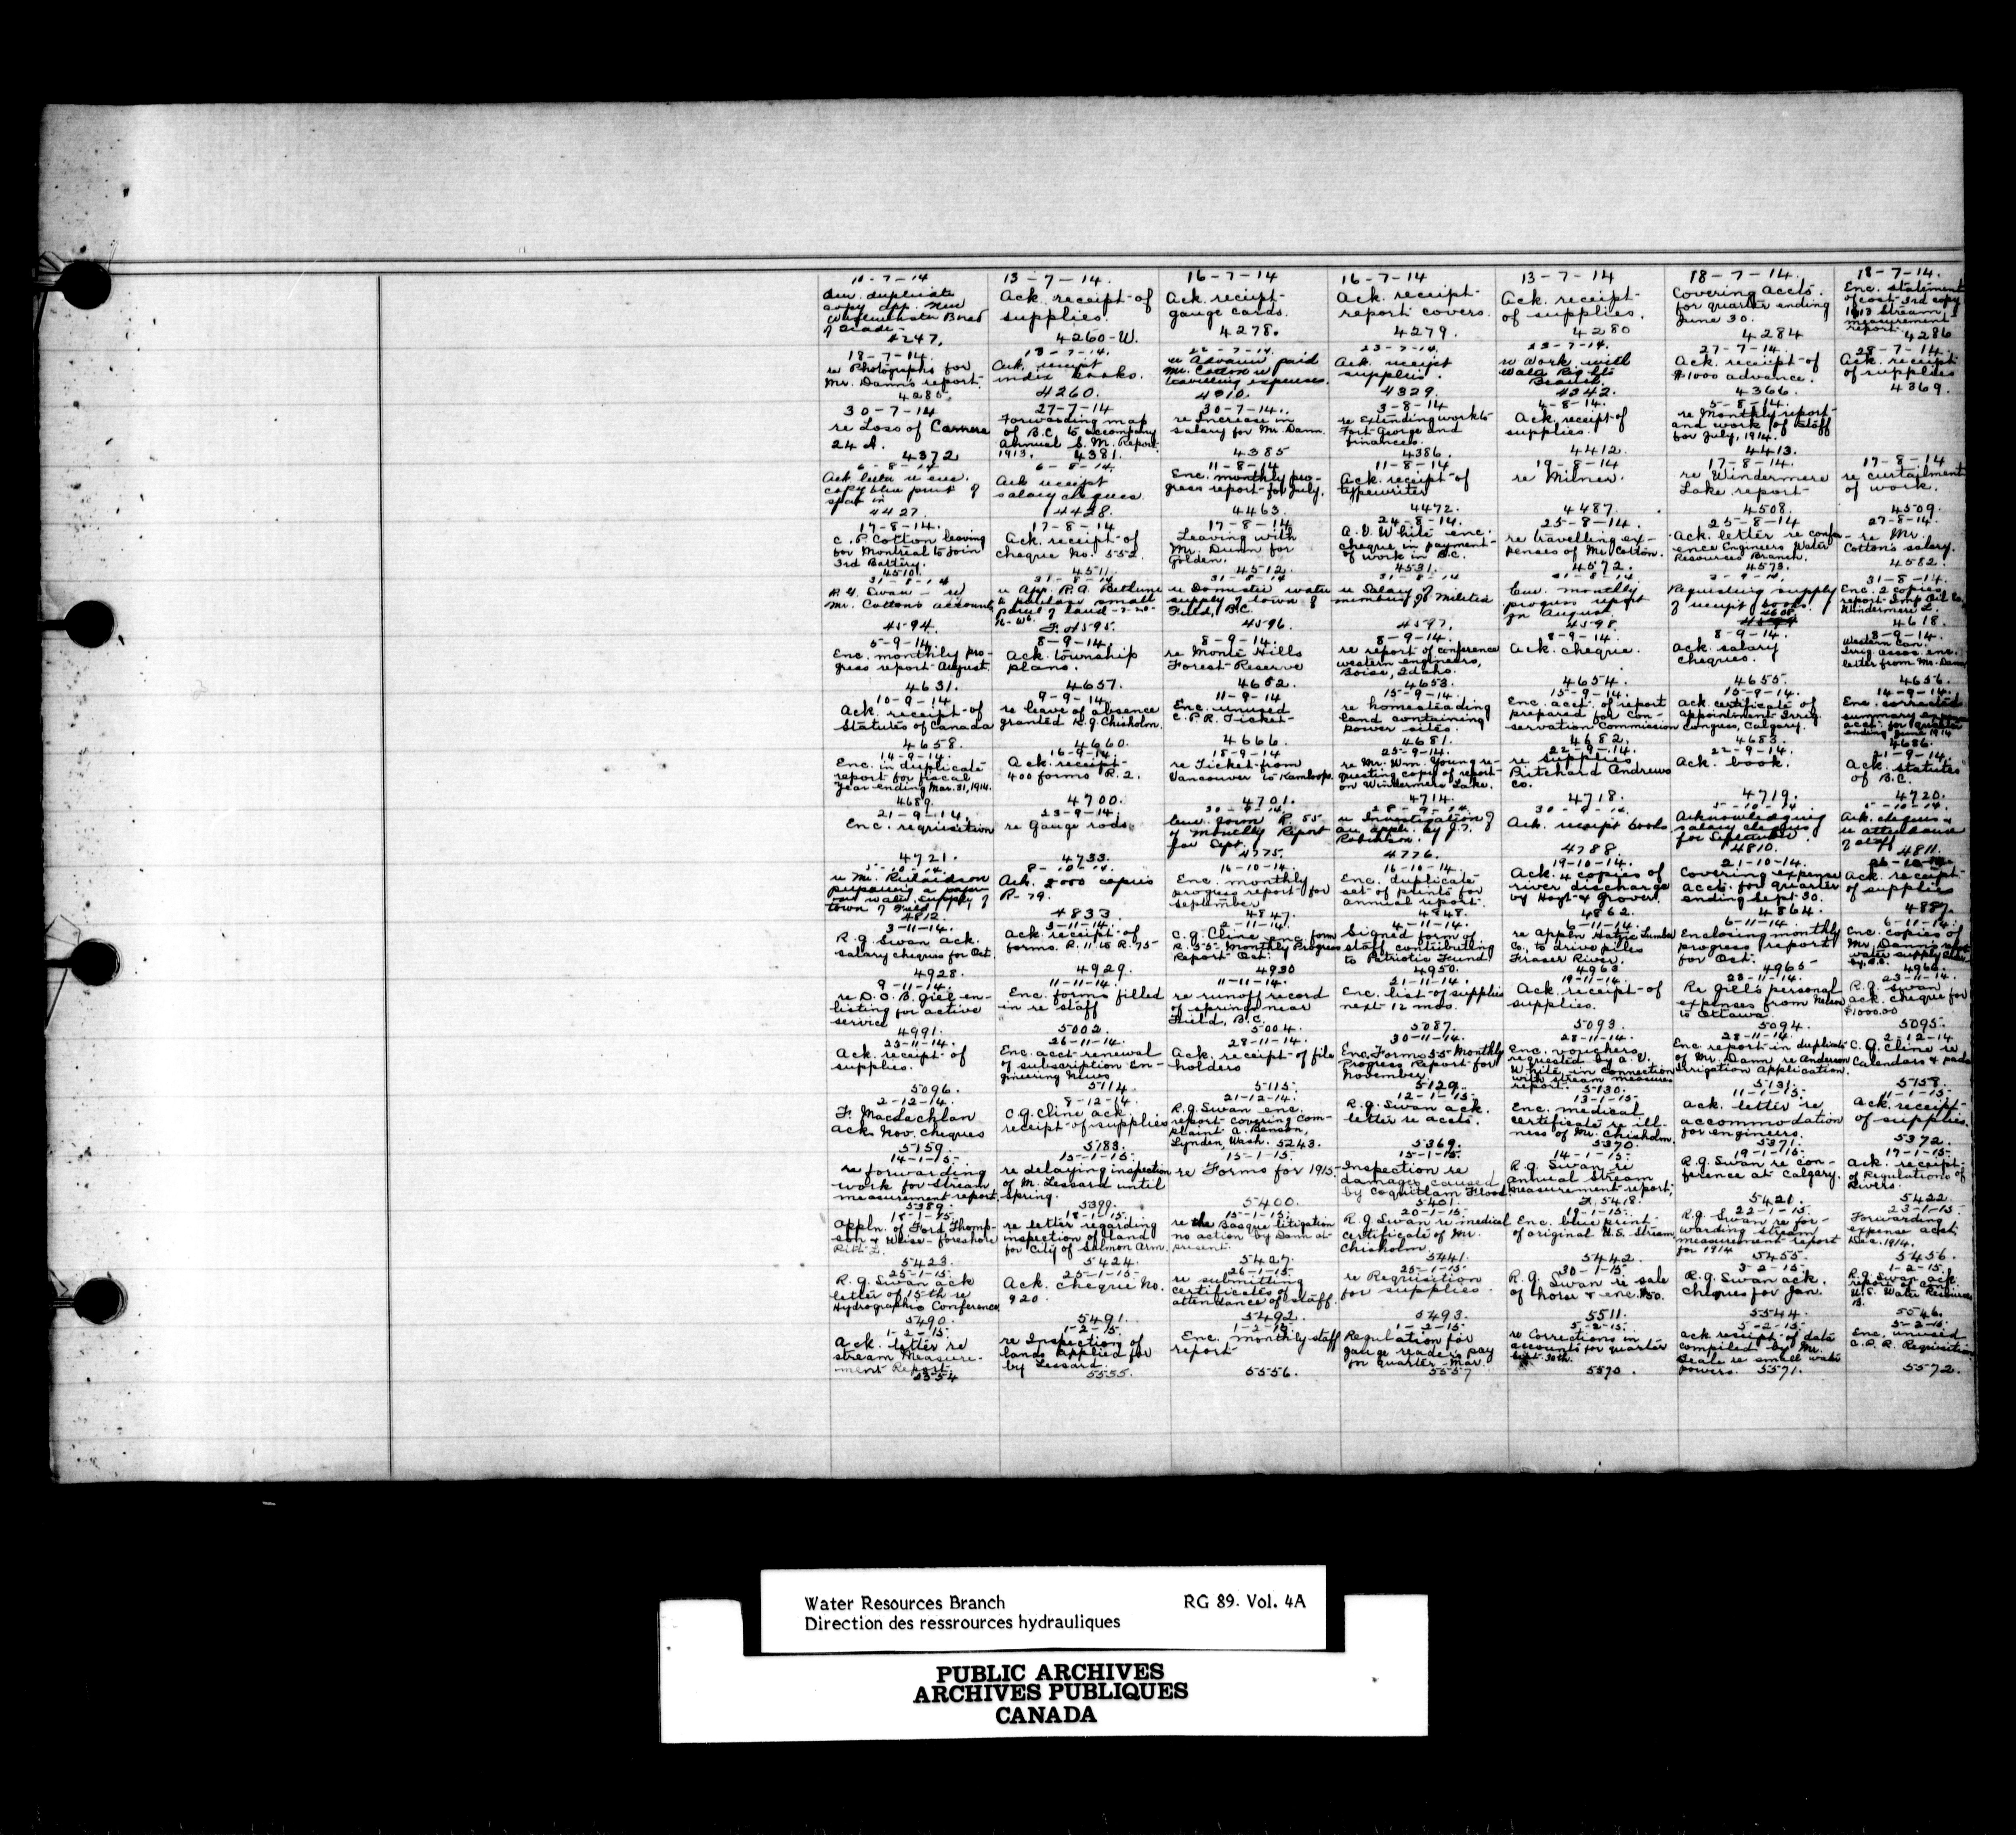 11-7-14
duplicate
copy app. New
Westminster Board
of Trade -
4247.
13-7-14.
Ack. receipt of
supplies.
4260-W.
16-7-14
Ack. receipt
gauge cards.
4278.
16-7-14
Ack. receipt
report covers.
4279.
13-7-14
Ack. receipt
of supplies.
4280
18-7-14.
Covering accts.
for quarter ending
June 30.
4284
18-7-14.
Enc. statement
of cost 3rd copy
1913 Stream
measurement
report.
4286
18-7-14.
re Photographs for
Mr. Dann's report.
4285.
13-7-14.
Ack. receipt
index books.
4260.
22-7-14.
re Advance paid
Mr. Cotton re
travelling expenses.
4310.
23-7-14.
Ack. receipt
supplies.
4329.
23-7-14.
re Work with
Water Rights
Branch.
4342.
27-7-14.
Ack. receipt of
$1000 advance.
4366.
28-7-14.
Ack. receipt
of supplies
4369.
30-7-14
re Loss of Camera
24 A.
4372
27-7-14
Forwarding map
of B.C. to accompany
Annual S. M. Report
1913. 4381.
30-7-14.
re Increase in
salary for Mr. Dann.
4385
3-8-14
re Extending work to
Fort George and
finances.
4386.
4-8-14.
Ack. receipt of
supplies.
4412.
5-8-14.
re Monthly report
and work of staff
for July, 1914.
4413.
6-8-14
Ack letter re enc.
copy blue print of
4427.
6-8-14.
Ack receipt
salary cheques.
4428.
11-8-14
Enc. monthly pro-
gress report for July.
4463.
11-8-14
Ack. receipt of
typewriter
4472.
19-8-14
re Milner.
4487.
17-8-14.
re Windermere
Lake report
4508.
17-8-14
re curtailment
of work.
4509.
17-8-14.
C. P. Cotton leaving
for Montreal to join
3rd Battery.
4510.
17-8-14
Ack. receipt of
cheque No. 552.
4511.
17-8-14
Leaving with
Mr. Dunn for
Golden.
4512.
24-8-14.
A. V. White enc.
cheque in payment
of work in B.C.
4531.
25-8-14.
re travelling ex-
penses of Mr Cotton.
4572.
25-8-14
Ack. letter re confer-
ence Engineers Water
Resources Branch.
4573.
27-8-14.
re Mr.
Cotton's salary.
4582.
31-8-14
R. G. Swan - re
Mr. Cotton's accounts
4594.
31-8-14
re App. R.A. Bethune
to purchase small
parcel of land
F. 4595.
31-8-14
re Domestic water
supply of town of
Field, B.C.
4596.
31-8-14
re Salary of
members of Militia
4597.
31-8-14.
Enc. monthly
progress report
for August
4598.
Requisition supply
of receipt books.
4608
4599
31-8-14.
Enc. 2 copies
report Imp Oil Co.
Windermere L.
4618.
5-9-14.
Enc. monthly pro-
gress report August.
4631.
8-9-14.
Ack. township
plans.
4657.
8-9-14.
re Monte Hills
Forest Reserve
4652.
8-9-14.
re report of conference
western engineers,
Boise, Idaho.
4653.
8-9-14.
Ack. cheque.
4654.
8-9-14.
Ack. salary
cheques.
4655.
8-9-14.
Western Can.
Irrig. assoc. enc.
letter from Mr. Dann
4656.
10-9-14.
Ack. receipt of
Statutes of Canada
4658.
9-9-14.
re leave of absence
granted K. G. Chisholm.
4660.
11-9-14
Enc. unused
C.P.R. Ticket
4666.
15-9-14.
re homesteading
land containing
power sites.
4681.
15-9-14.
Enc. acct. of report
prepared for Con-
servation Commission
4682.
15-9-14.
Ack. certificate of
appointment Irrig.
Congress, Calgary.
4683.
14-9-14.
Enc. corrected
summary expense
acct. for quarter
ending June 1914
4686.
14-9-14.
Enc. in duplicate
report for fiscal
year ending Mar. 31, 1914.
4689.
16-9-14.
Ack. receipt
400 forms R. 2.
4700.
18-9-14
re Ticket from
Vancouver to Kamloops.
4701.
25-9-14.
re Mr. Wm. Young re-
questing copy of report
on Windermere Lake.
4714.
22-9-14.
re supplies
Pritchard Andrews
Co.
4718.
22-9-14.
Ack. book.
4719.
21-9-14.
Ack. statutes
of B.C.
4720.
21-9-14.
Enc. requisition
4721.
23-9-14.
re Gauge rods.
4733.
30-9-14.
Enc. form R. 55
of Monthly Report
for Sept.
4775.
28-9-14.
re Investigation of
an appln. by J. T.
Robinson.
4776.
30-9-14.
Ack. receipt books.
4788.
5-10-14
Acknowledging
salary cheques
for September
4810.
5-10-14.
Ack. cheques &
re attendance
of staff
4811.
5-10-14.
re Mr. Richardson
preparing a paper
on water supply of
town of Field
4812.
8-10-14.
Ack. 2000 copies
R-79.
4833.
16-10-14
Enc. monthly
progress report for
September
4847.
16-10-14.
Enc. duplicate
set of prints for
annual report.
4848.
19-10-14.
Ack. 4 copies of
river discharge
by Hoyt & Grover.
4862.
21-10-14.
Covering expense
acct. for quarter
ending Sept. 30.
4864.
Ack. receipt
of supplies
4887.
3-11-14.
R.G. Swan ack.
salary cheques for Oct.
4928.
3-11-14.
Ack. receipt of
forms R. 11. to R. 75
4929.
2-11-14.
C.G. Cline enc. form
R. 55 - Monthly Progress
Report Oct.
4930
4-11-14.
Signed form of
staff contributing
to Patriotic Fund
4950.
6-11-14.
re appln Hatzic Lumber
Co., to drive piles
Fraser River.
4963
6-11-14
Enclosing monthly
progress report
for Oct.
4965
6-11-14.
Enc. copies of
Mr. Dann's report
water supply
4966.
9-11-14.
re D. O. B. Giel en-
listing for active
service
4991.
11-11-14.
Enc. forms filled
in re staff
5002.
11-11-14.
re runoff record
of springs near
Field, B.C.
5004.
21-11-14.
Enc. list of supplies
next 12 mos.
5087.
19-11-14.
Ack receipt of
supplies.
5093.
23-11-14.
Re Giel's personal
expenses from Nelson
to Ottawa.
5094.
23-11-14.
R.G. Swan
ack. cheque for
$1000.00
5095.
25-11-14.
Ack. receipt of
supplies.
5096.
26-11-14.
Enc. acct. renewal
of subscription En-
gineering News
5114
28-11-14.
Ack. receipt of file
holders
5115.
30-11-14.
Enc. Forms 55 Monthly
Progress Report for
November.
5129.
28-11-14.
Enc. vouchers
requested by A. V.
White in connection
with stream measure
report. 5130.
28-11-14.
Enc. report in duplicate
of Mr. Dann re Anderson
Irrigation Application.
5131.
2-12-14.
C. G. Cline re
Calendars & pads
5158.
2-12-14.
F. Maclachlan
ack. Nov. cheques
5159.
8-12-14.
C.G. Cline ack.
receipt of supplies
5183.
21-12-14.
R.G. Swan enc.
report covering com-
plaint A. Benson,
Lynden Wash. 5243.
12-1-15.
R.G. Swan ack.
letter re accts.
5369.
13-1-15.
Enc. medical
certificate re ill-
ness of Mr. Chisholm.
5370.
11-1-15.
ack. letter re
accommodation
for engineers.
5371.
11-1-15.
Ack. receipt
of supplies.
5372.
14-1-15.
re forwarding
work for stream
measurement report.
5389.
15-1-15.
re delaying inspection
of M. Lessard until
Spring.
5399.
15-1-15.
re Forms for 1915
5400.
15-1-15.
Inspection re
damages caused
by Coquitlam Flood.
5401.
14-1-15.
R.G. Swan re
annual stream
measurement report.
F. 5418.
19-1-15.
R.G. Swan re con-
ference at Calgary.
5421.
17-1-15.
Ack. receipt
of Regulations of
Rivers.
5422.
18-1-15.
Appln. of Ford Thomp-
son & Weise - foreshore
Pitt L.
5423.
18-1-15.
re letter regarding
inspection of land
for City of Salmon Arm.
5424.
15-1-15.
re the Basque litigation
no action by Dann at
present.
5427.
20-1-15.
R.G. Swan re medical
certificate of Mr.
Chisholm.
5441.
19-1-15.
Enc. blue print
of original U.S. Stream
5442.
22-1-15.
R.G. Swan re for-
warding stream
measurement report
for 1914
5455.
23-1-15.
Forwarding
expense acct
Dec. 1914.
5456.
25-1-15.
R.G. Swan ack
letter of 15th re
Hydrographic Conference
5490.
25-1-15.
Ack. cheque No.
920.
5491.
26-1-15.
re submitting
certificates of
attendance of staff.
5492.
25-1-15.
re Requisition
for supplies.
5493.
30-1-15.
R.G. Swan re sale
of horse & enc. $50.
5511.
3-2-15.
R.G. Swan ack.
cheques for Jan.
5544.
1-2-15.
R.G. Swan ack
report of conf.
U.S. Water Resources
B.
5546.
1-2-15.
Ack. letter re
stream Measure-
ment Report
5554
1-2-15.
re Inspection of
lands applied for
by Lessard.
5555.
1-2-15.
Enc. monthly staff
report
5556.
1-2-15.
Regulation for
gauge readers pay
for quarter Mar.
5557
5-2-15.
re Corrections in
accounts for quarter
Sept. 30th.
5570.
5-2-15.
ack receipt of data
compiled by Mr.
Beale re small water
powers. 5571.
5-2-15.
Enc. unused
C.P.R. Requisition
5572.
Water Resources Branch RG 89. Vol. 4A
Direction des ressrources hydrauliques
PUBLIC ARCHIVES
ARCHIVES PUBLIQUES
CANADA